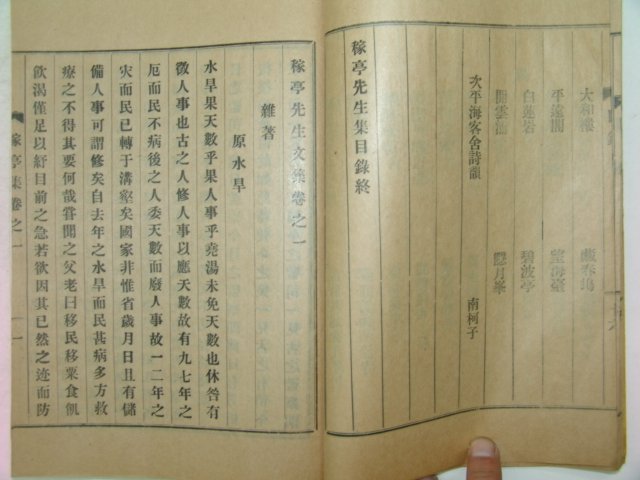 太和樓
平遠閣 望海臺
白蓮岩 碧波亭
開雲浦 隱月峯
次平海客舍詩韻 南柯子
稼亭先生集目錄終
稼亭先生文集卷之一
雜著
原水旱
水旱果天數乎果人事乎堯湯未免天數也休咎有
徵人事也古之人修人事以應天數故有九七年之
厄而民不病後之人委天數而廢人事故一二年之
灾而民已轉于溝壑矣國家非惟省歲月日且有儲
備人事可謂修矣自去年之水旱而民甚病多方救
療之不得其要何哉嘗聞之父老曰移民移粟食飢
飮渴僅足以紓目前之急若欲因其已然之迹而防
稼亭集卷之一
一